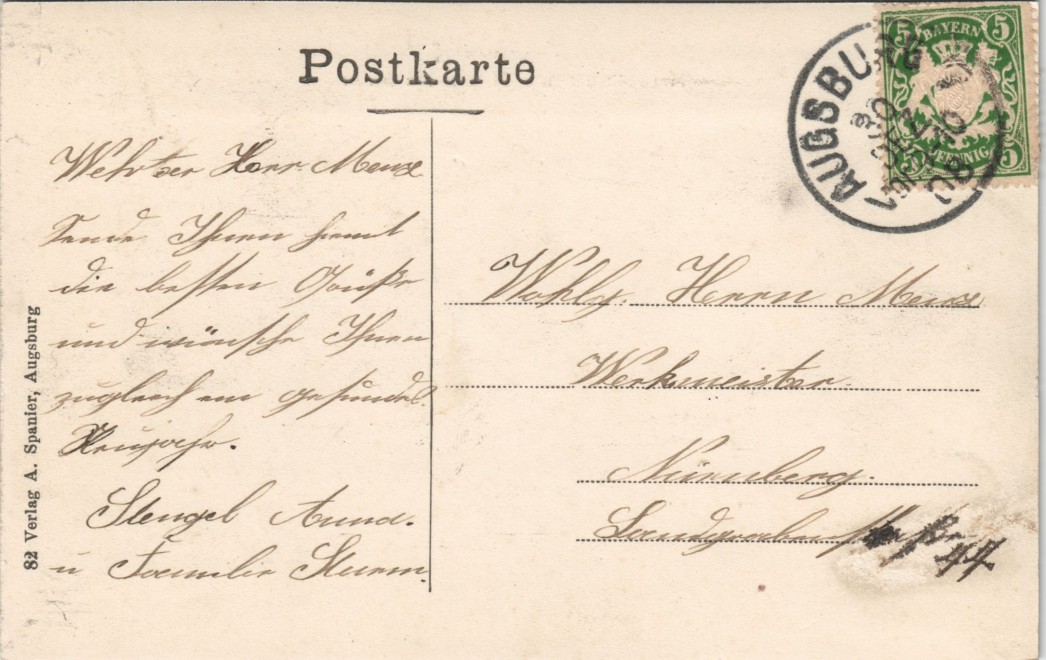 Postkarte
BAYERN
5 5
5 PFENNIG 5
AUGSBURG
Werter Herr Menze
Sende Ihnen hiemit
die besten Grüße
und wünsche Ihnen
zugleich ein gesundes
Neujahr.
Stengel Anna.
u Familie Sturm
Wohlg. Herrn Menze
Werkmeister.
Nürnberg.
Landgrabenstraße 44
82 Verlag A. Spanier, Augsburg